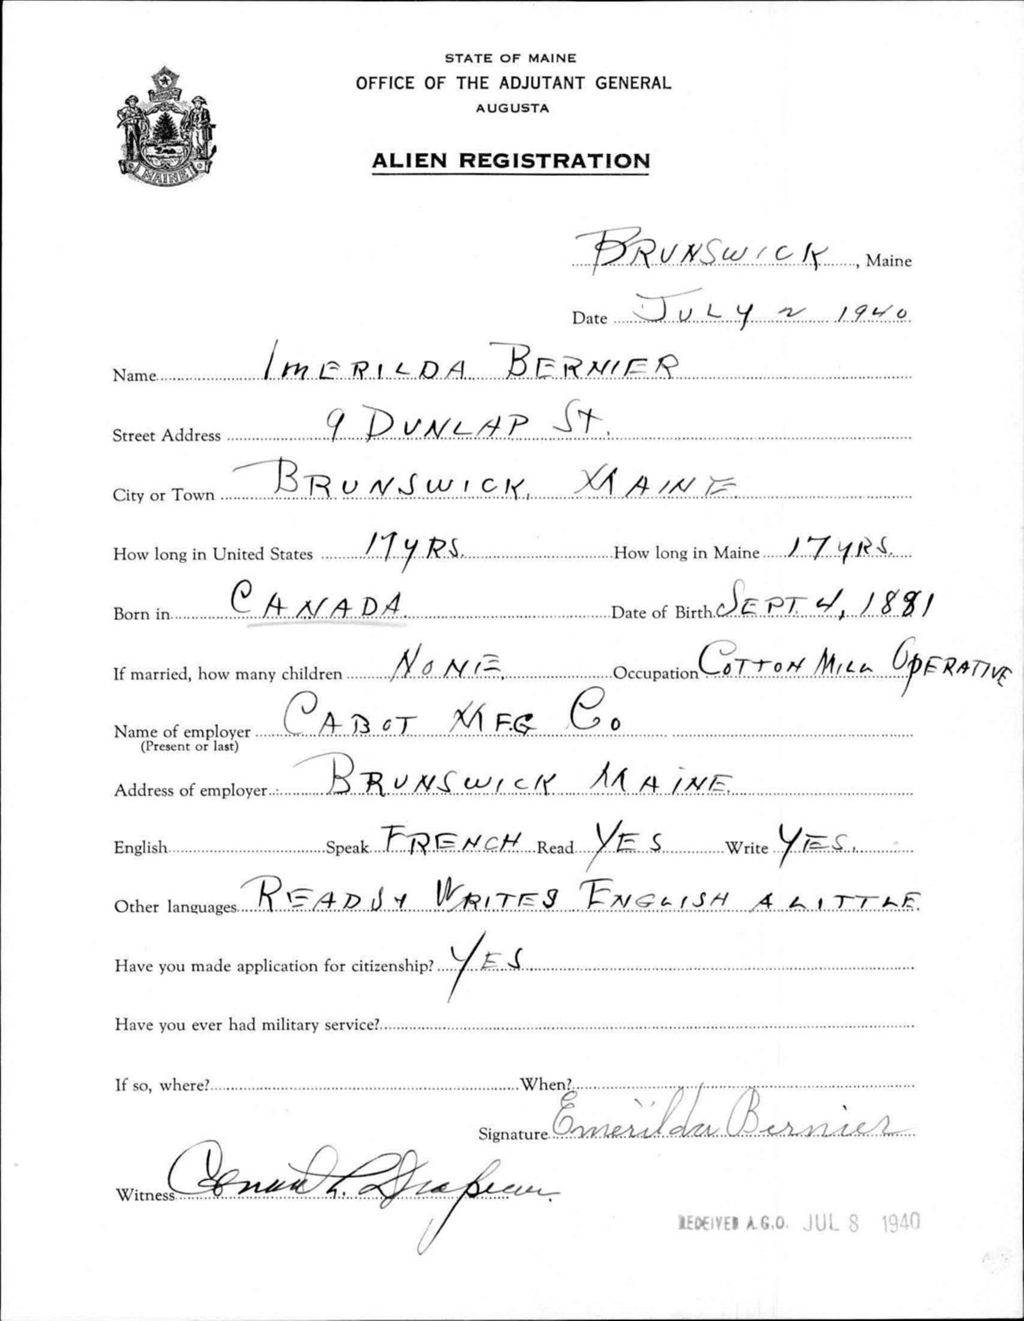 STATE OF MAINE
OFFICE OF THE ADJUTANT GENERAL
AUGUSTA
MAINE
ALIEN REGISTRATION
BRUNSWICK, Maine
Date JULY 2 1940
Name IMERILDA BERNIER
Street Address 9 DUNLAP St.
City or Town BRUNSWICK, MAINE
How long in United States 17 yRS. How long in Maine 17 yRS.
Born in CANADA Date of Birth SEPT. 4, 1881
If married, how many children NONE. Occupation COTTON MILL OPERATIVE
Name of employer CABOT MFG Co
(Present or last)
Address of employer BRUNSWICK MAINE.
English Speak FRENCH Read YES Write YES.
Other languages READS y WRITES ENGLISH A LITTLE.
Have you made application for citizenship? YES
Have you ever had military service?
If so, where? When?
Signature Emerilda Bernier
Witness L. Drapeau
RECEIVED A.G.O. JUL 8 1940